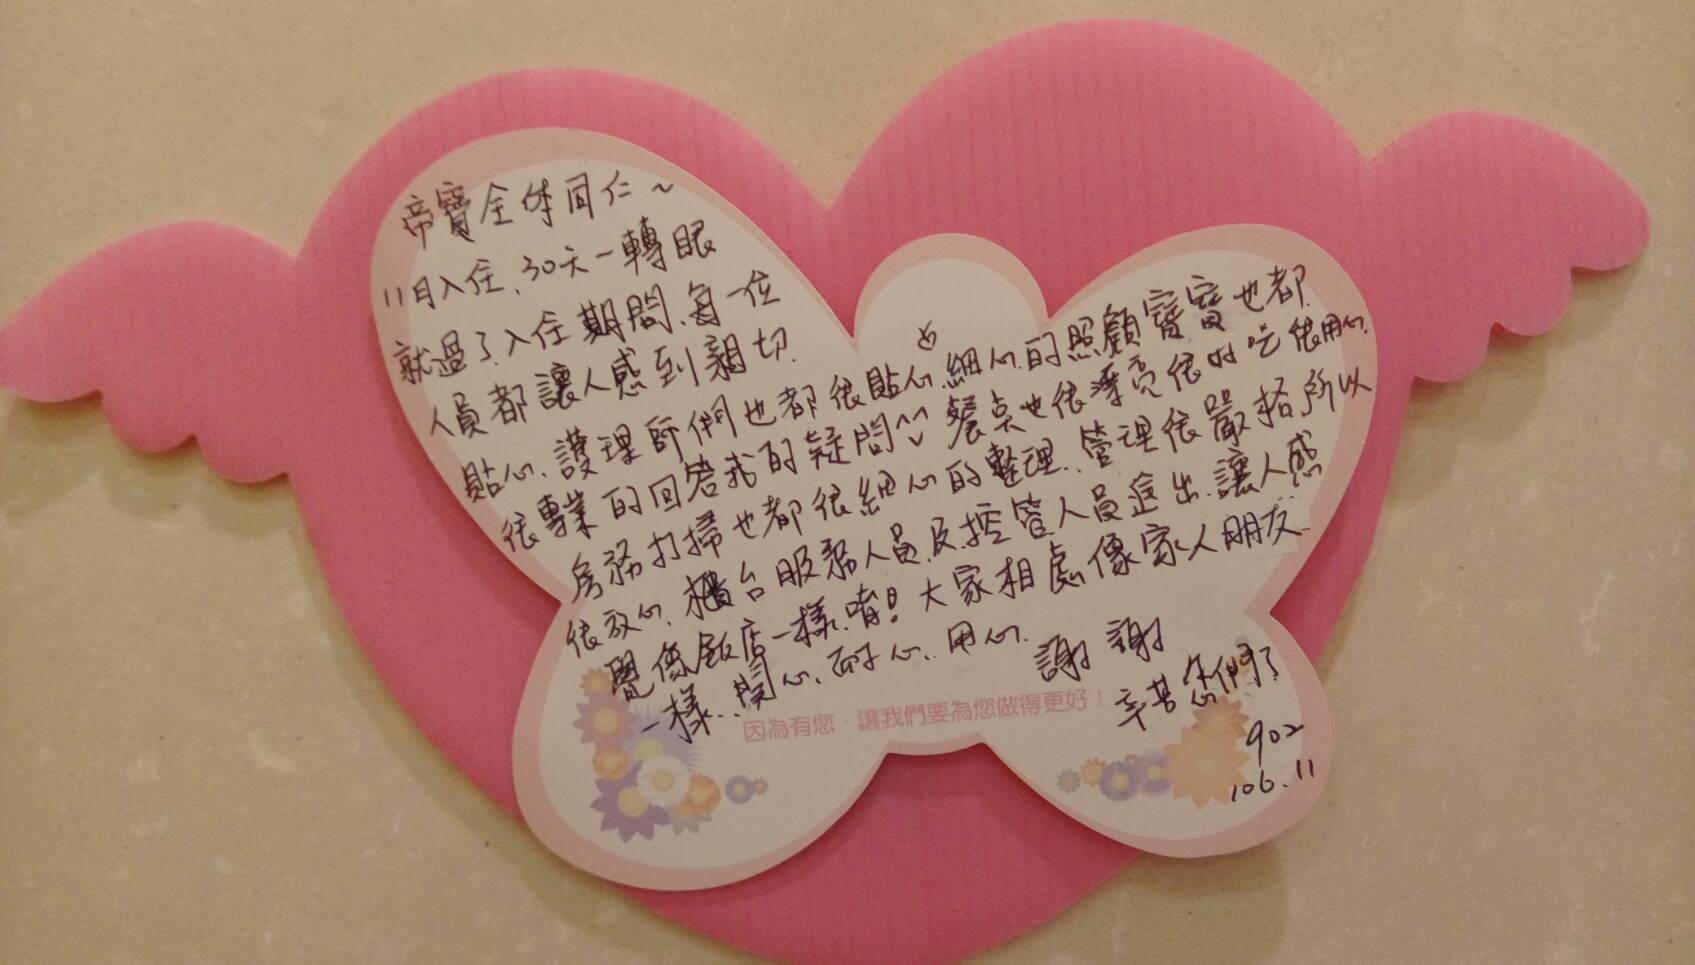 帝寶全体同仁~
11月入住、30天一轉眼
就過了、入住期間、每一位
人員都讓人感到親切、
貼心、護理師們也都很貼心、細心的照顧寶寶也都
很專業的回答我的疑問^^ 餐点也很漂亮很好吃很用心、
房務打掃也都很細心的整理、管理很嚴格所以
很放心、櫃台服務人員及控管人員進出、讓人感
覺像飯店一樣唷！大家相處像家人朋友
一樣、開心、耐心、用心、
謝謝
辛苦您們了
902
106.11
因為有您，讓我們要為您做得更好！